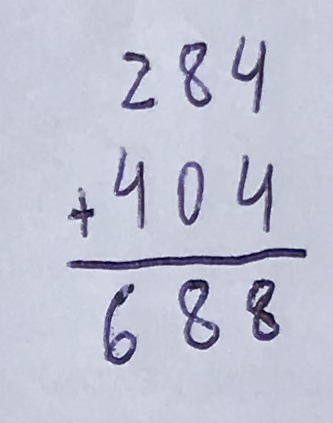 284
+404
688